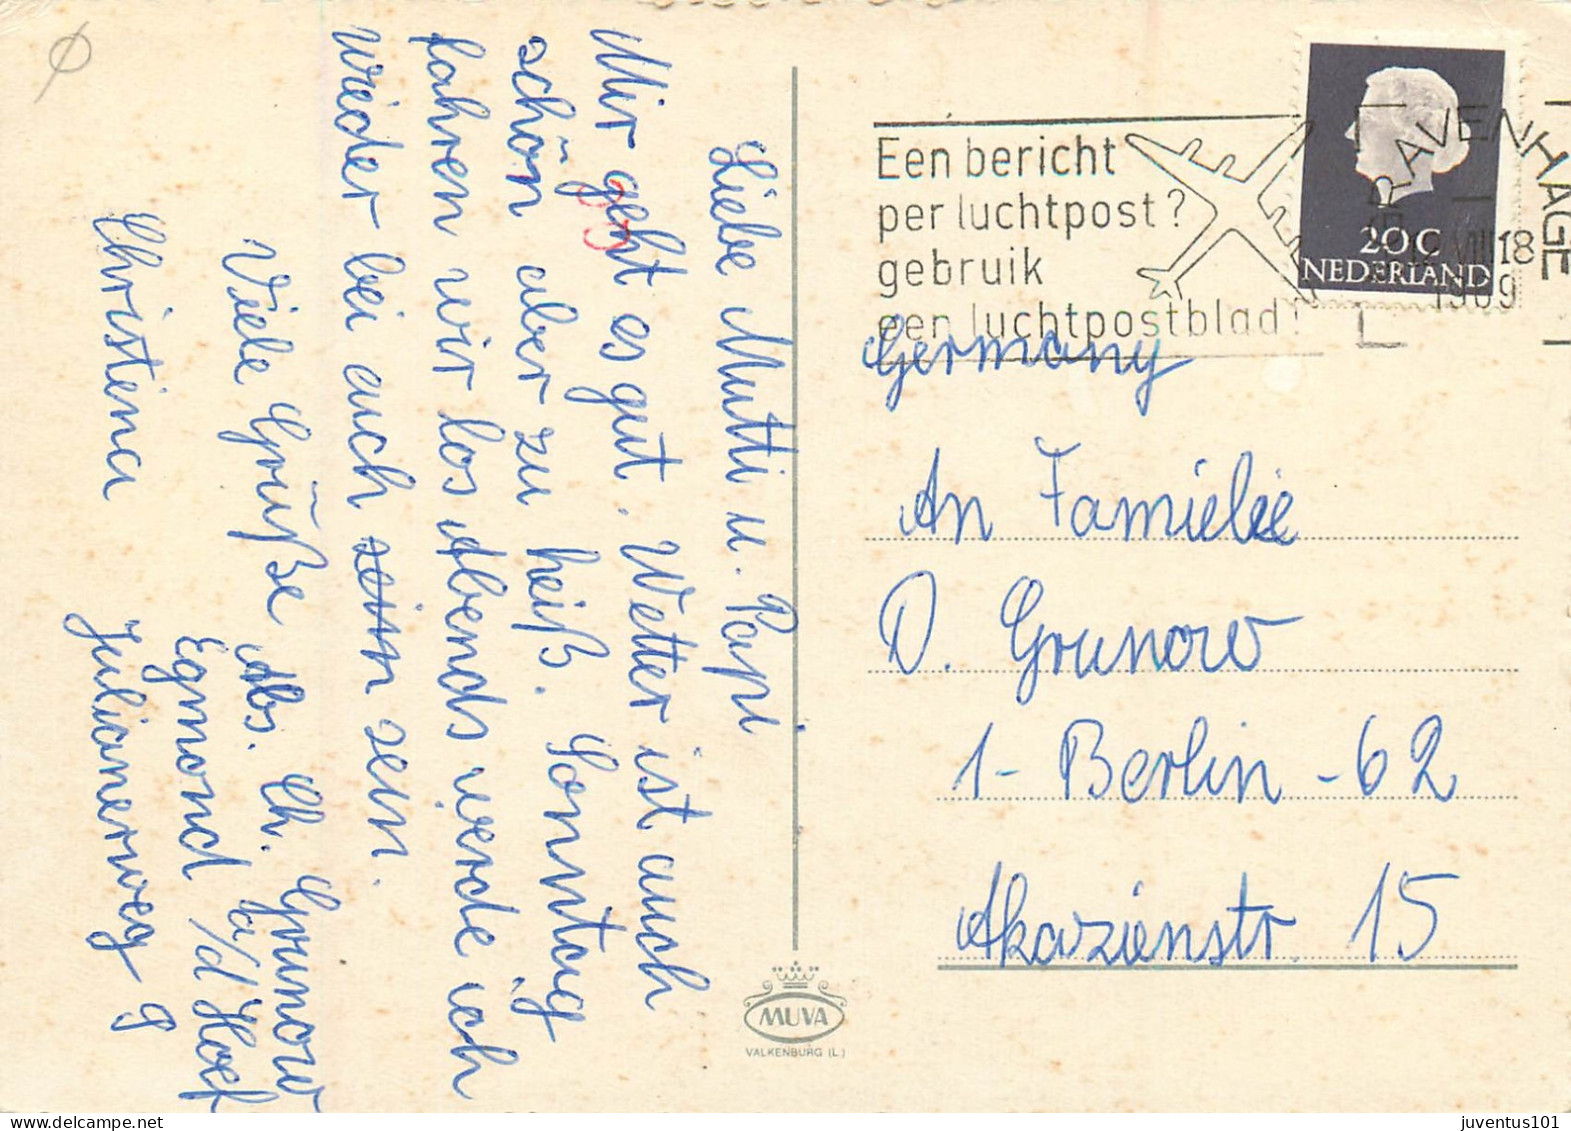 Liebe Mutti u. Papi.
Mir geht es gut. Wetter ist auch
schön aber zu heiß. Sonntag
fahren wir los Abends werde ich
wieder bei euch sein sein.
Viele Grüße
Christina
Abs. Ch. Grunow
Egmond a/d Hoef
Julianerweg 9
Een bericht
per luchtpost?
gebruik
een luchtpostblad!
20 C
NEDERLAND
'S GRAVENHAGE
VIII 18
1969
Germany
An Familie
D. Grunow
1 - Berlin - 62
Akazienstr. 15
MUVA
VALKENBURG (L.)
www.delcampe.net
juventus101